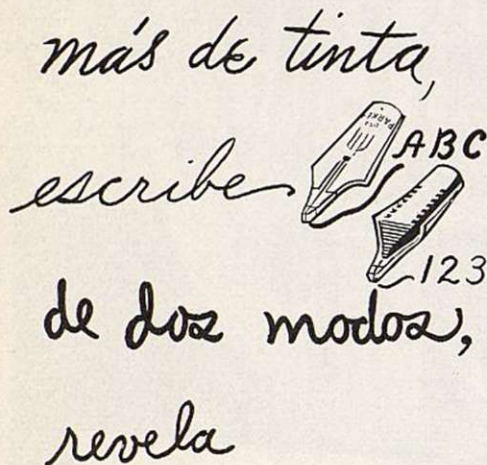 más de tinta,
escribe
PARKER
USA
ABC
123
de dos modos,
revela